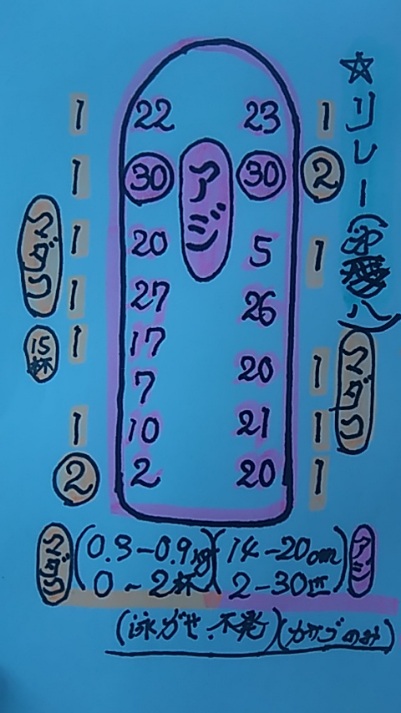 ☆リレー(沖 八)
1 22 23 1
1 30 アジ 30 2
マダコ
1 20 5 1
1 27 26
15杯 1 17 20 1
マダコ
7
1 10 21 1
2 2 20 1
マダコ (0.3-0.9kg) (14-20cm) アジ
0~2杯 2-30匹
(泳がせ、不発)(カサゴのみ)